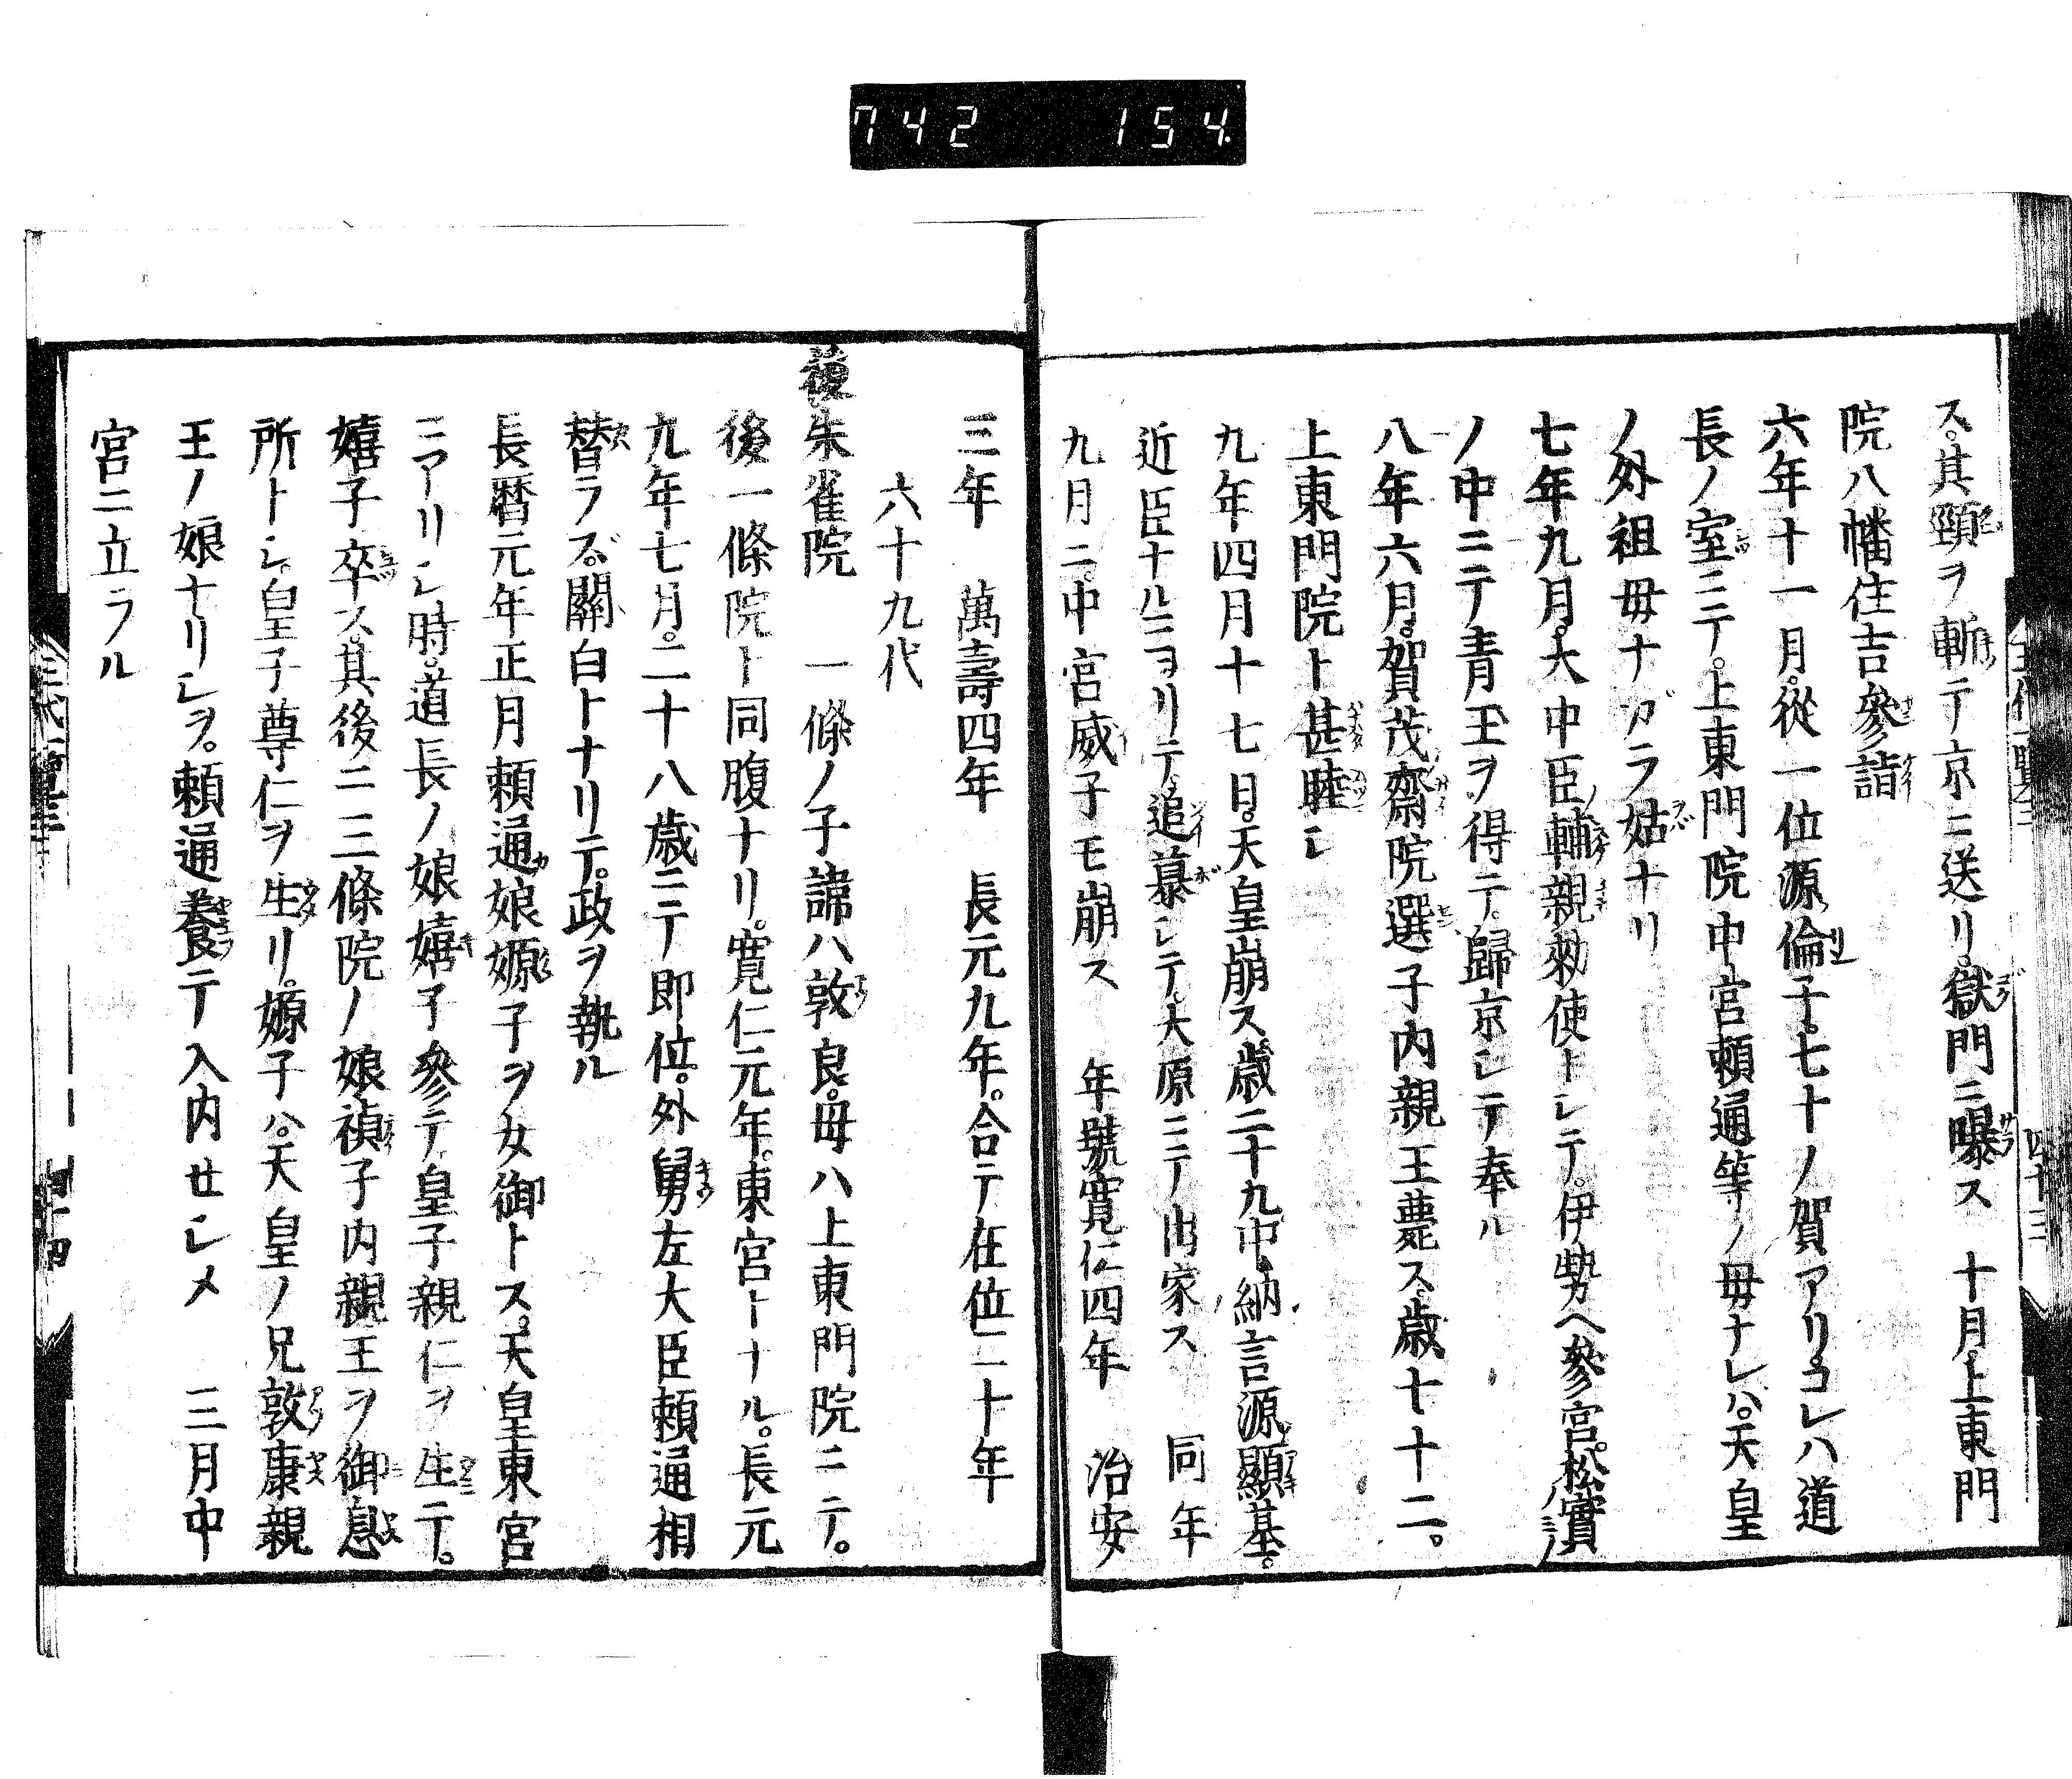 742 154
ス。其頸ヲ斬テ京ニ送リ。獄門ニ曝ス 十月。上東門
院八幡住吉參詣
六年十一月。從一位源倫子。七十ノ賀アリ。コレハ道
長ノ室ニテ。上東門院中宮頼通等ノ母ナレバ。天皇
ノ外祖母ナガラ姑ナリ
七年九月。大中臣輔親勅使トシテ。伊勢ヘ參宮。松實
ノ中ニテ青玉ヲ得テ。歸京シテ奉ル
八年六月。賀茂齋院選子内親王薨ス。歳七十二。
上東門院ト甚睦シ
九年四月十七日。天皇崩ス。歳二十九。中納言源顯基。
近臣ナルニヨリテ。追慕シテ。大原ニテ出家ス 同年
九月ニ。中宮威子モ崩ス 年號寛仁四年 治安
三年 萬壽四年 長元九年。合テ在位二十年
六十九代
後朱雀院 一條ノ子諱ハ敦良。母ハ上東門院ニテ。
後一條院ト同腹ナリ。寛仁元年。東宮トナル。長元
九年七月。二十八歳ニテ即位。外舅左大臣頼通相
替ラズ。關白トナリテ。政ヲ執ル
長暦元年正月頼通娘嫄子ヲ女御トス。天皇東宮
ニアリシ時。道長ノ娘嬉子參テ。皇子親仁ヲ生テ。
嬉子卒ス。其後ニ三條院ノ娘禎子内親王ヲ御息
所トシ。皇子尊仁ヲ生リ。嫄子ハ。天皇ノ兄敦康親
王ノ娘ナリシヲ。頼通養テ入内セシメ 三月中
宮ニ立ラル